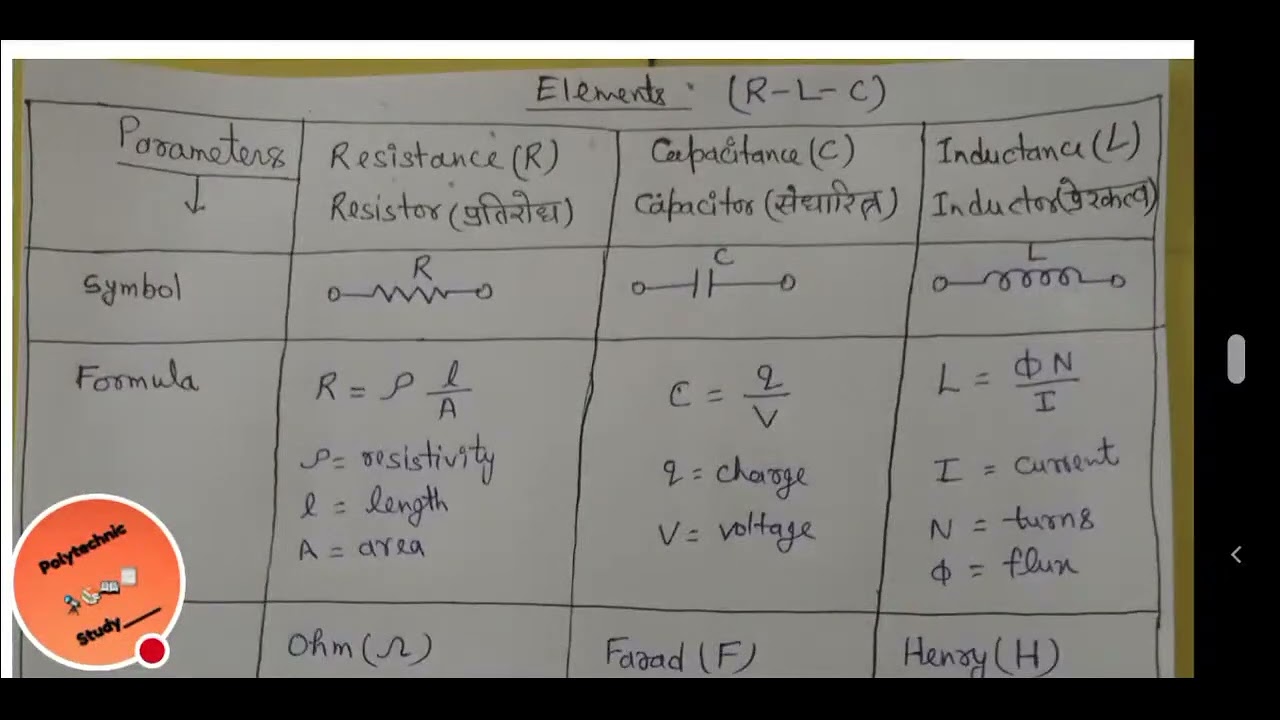 Elements: (R-L-C)
Parameters
Resistance (R)
Resistor (प्रतिरोध)
Capacitance (C)
Capacitor (संधारित्र)
Inductance (L)
Inductor (प्रेरकत्व)
Symbol
R
C
L
Formula
R = ρ l/A
ρ = resistivity
l = length
A = area
C = q/V
q = charge
V = voltage
L = ΦN/I
I = current
N = turns
Φ = flux
Polytechnic
Study
Ohm (Ω)
Farad (F)
Henry (H)